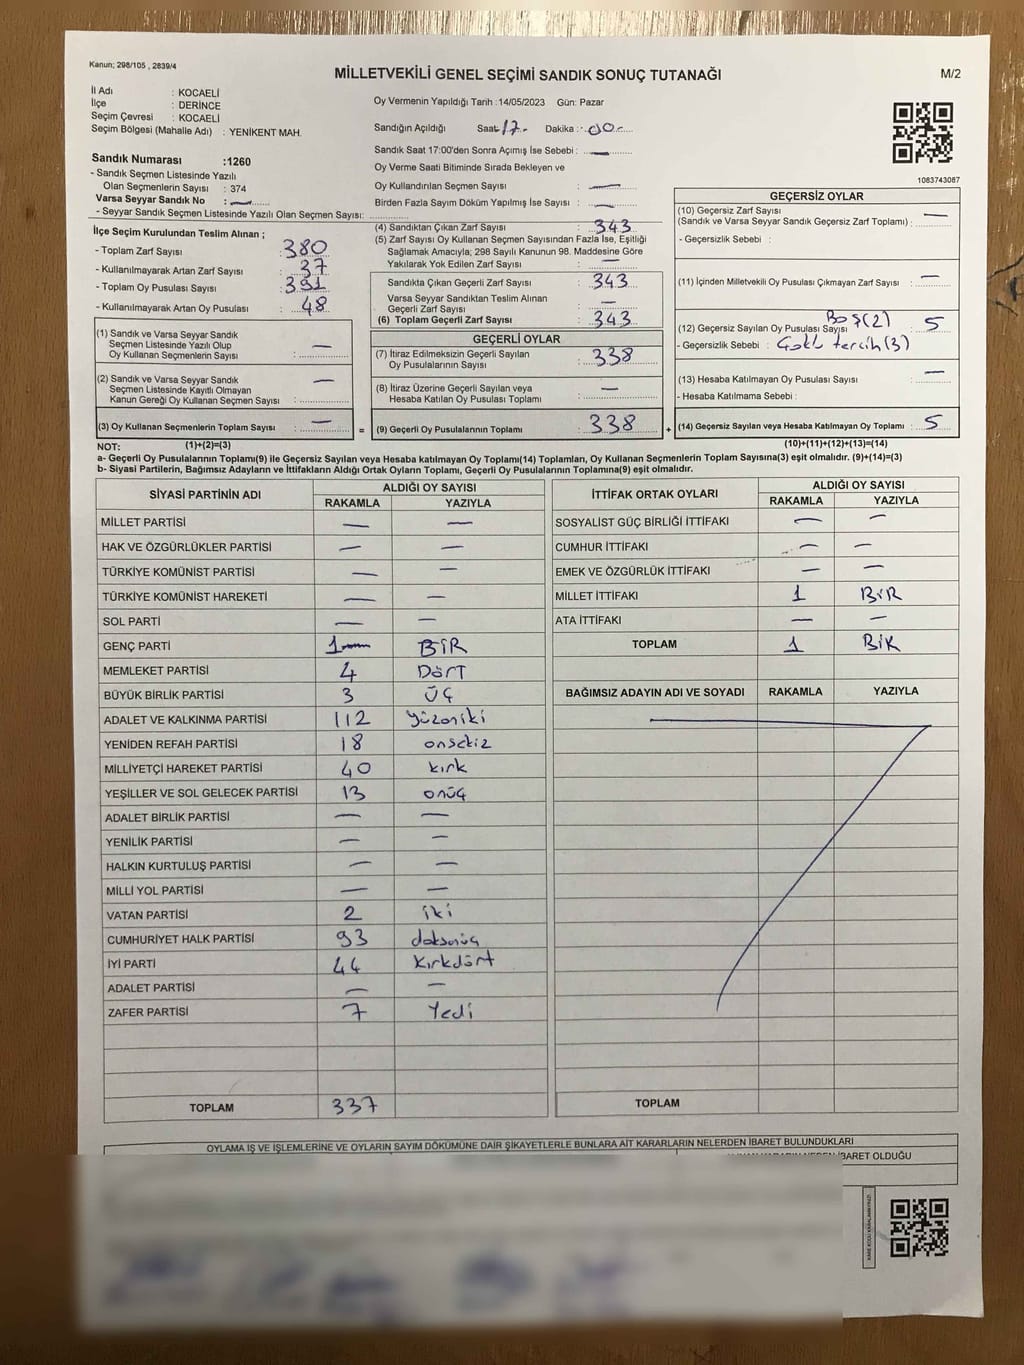 Kanun; 298/105 , 2839/4
MİLLETVEKİLİ GENEL SEÇİMİ SANDIK SONUÇ TUTANAĞI
M/2
İl Adı : KOCAELİ
İlçe : DERİNCE
Seçim Çevresi : KOCAELİ
Seçim Bölgesi (Mahalle Adı) : YENİKENT MAH.
Sandık Numarası :1260
- Sandık Seçmen Listesinde Yazılı
Olan Seçmenlerin Sayısı : 374
Varsa Seyyar Sandık No : —
- Seyyar Sandık Seçmen Listesinde Yazılı Olan Seçmen Sayısı:
İlçe Seçim Kurulundan Teslim Alınan ;
- Toplam Zarf Sayısı : 380
- Kullanılmayarak Artan Zarf Sayısı : 37
- Toplam Oy Pusulası Sayısı : 391
- Kullanılmayarak Artan Oy Pusulası : 48
(1) Sandık ve Varsa Seyyar Sandık
Seçmen Listesinde Yazılı Olup
Oy Kullanan Seçmenlerin Sayısı : —
(2) Sandık ve Varsa Seyyar Sandık
Seçmen Listesinde Kayıtlı Olmayan
Kanun Gereği Oy Kullanan Seçmen Sayısı : —
(3) Oy Kullanan Seçmenlerin Toplam Sayısı : —
Oy Vermenin Yapıldığı Tarih :14/05/2023 Gün: Pazar
Sandığın Açıldığı Saat: 17 Dakika : 00
Sandık Saat 17:00'den Sonra Açımış İse Sebebi : —
Oy Verme Saati Bitiminde Sırada Bekleyen ve
Oy Kullandırılan Seçmen Sayısı : —
Birden Fazla Sayım Döküm Yapılmış İse Sayısı : —
(4) Sandıktan Çıkan Zarf Sayısı : 343
(5) Zarf Sayısı Oy Kullanan Seçmen Sayısından Fazla İse, Eşitliği
Sağlamak Amacıyla; 298 Sayılı Kanunun 98. Maddesine Göre
Yakılarak Yok Edilen Zarf Sayısı : —
Sandıkta Çıkan Geçerli Zarf Sayısı : 343
Varsa Seyyar Sandıktan Teslim Alınan
Geçerli Zarf Sayısı : —
(6) Toplam Geçerli Zarf Sayısı : 343
GEÇERLİ OYLAR
(7) İtiraz Edilmeksizin Geçerli Sayılan
Oy Pusulalarının Sayısı : 338
(8) İtiraz Üzerine Geçerli Sayılan veya
Hesaba Katılan Oy Pusulası Toplamı : —
= (9) Geçerli Oy Pusulalarının Toplamı : 338 +
1083743087
GEÇERSİZ OYLAR
(10) Geçersiz Zarf Sayısı
(Sandık ve Varsa Seyyar Sandık Geçersiz Zarf Toplamı) : —
- Geçersizlik Sebebi :
(11) İçinden Milletvekili Oy Pusulası Çıkmayan Zarf Sayısı : —
Boş(2)
(12) Geçersiz Sayılan Oy Pusulası Sayısı : 5
- Geçersizlik Sebebi : Çoklu tercih(3)
(13) Hesaba Katılmayan Oy Pusulası Sayısı : —
- Hesaba Katılmama Sebebi :
(14) Geçersiz Sayılan veya Hesaba Katılmayan Oy Toplamı : 5
NOT: (1)+(2)=(3) (10)+(11)+(12)+(13)=(14)
a- Geçerli Oy Pusulalarının Toplamı(9) ile Geçersiz Sayılan veya Hesaba katılmayan Oy Toplamı(14) Toplamları, Oy Kullanan Seçmenlerin Toplam Sayısına(3) eşit olmalıdır. (9)+(14)=(3)
b- Siyasi Partilerin, Bağımsız Adayların ve İttifakların Aldığı Ortak Oyların Toplamı, Geçerli Oy Pusulalarının Toplamına(9) eşit olmalıdır.
SİYASİ PARTİNİN ADI ALDIĞI OY SAYISI
RAKAMLA YAZIYLA
MİLLET PARTİSİ — —
HAK VE ÖZGÜRLÜKLER PARTİSİ — —
TÜRKİYE KOMÜNİST PARTİSİ — —
TÜRKİYE KOMÜNİST HAREKETİ — —
SOL PARTİ — —
GENÇ PARTİ 1 BİR
MEMLEKET PARTİSİ 4 Dört
BÜYÜK BİRLİK PARTİSİ 3 ÜÇ
ADALET VE KALKINMA PARTİSİ 112 yüzoniki
YENİDEN REFAH PARTİSİ 18 onsekiz
MİLLİYETÇİ HAREKET PARTİSİ 40 kırk
YEŞİLLER VE SOL GELECEK PARTİSİ 13 onüç
ADALET BİRLİK PARTİSİ — —
YENİLİK PARTİSİ — —
HALKIN KURTULUŞ PARTİSİ — —
MİLLİ YOL PARTİSİ — —
VATAN PARTİSİ 2 iki
CUMHURİYET HALK PARTİSİ 93 doksanüç
İYİ PARTİ 44 kırkdört
ADALET PARTİSİ — —
ZAFER PARTİSİ 7 Yedi
TOPLAM 337
İTTİFAK ORTAK OYLARI ALDIĞI OY SAYISI
RAKAMLA YAZIYLA
SOSYALİST GÜÇ BİRLİĞİ İTTİFAKI — —
CUMHUR İTTİFAKI — —
EMEK VE ÖZGÜRLÜK İTTİFAKI — —
MİLLET İTTİFAKI 1 BİR
ATA İTTİFAKI — —
TOPLAM 1 BİR
BAĞIMSIZ ADAYIN ADI VE SOYADI RAKAMLA YAZIYLA
TOPLAM
OYLAMA İŞ VE İŞLEMLERİNE VE OYLARIN SAYIM DÖKÜMÜNE DAİR ŞİKAYETLERLE BUNLARA AİT KARARLARIN NELERDEN İBARET BULUNDUKLARI
İBARET OLDUĞU